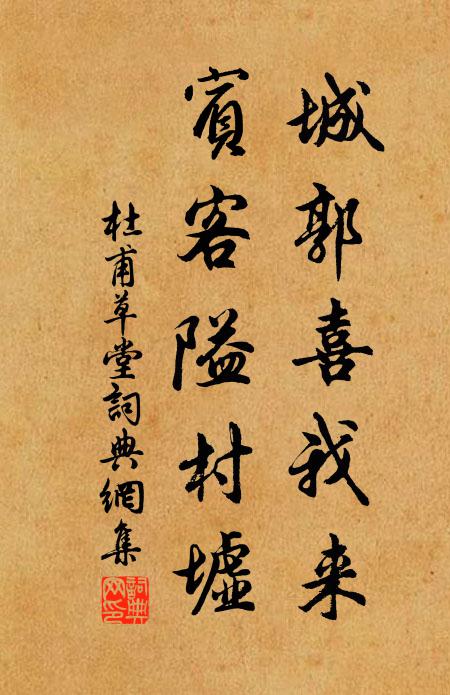 城郭喜我来
賓客隘村墟
杜甫草堂詞典網集
詞典
网印